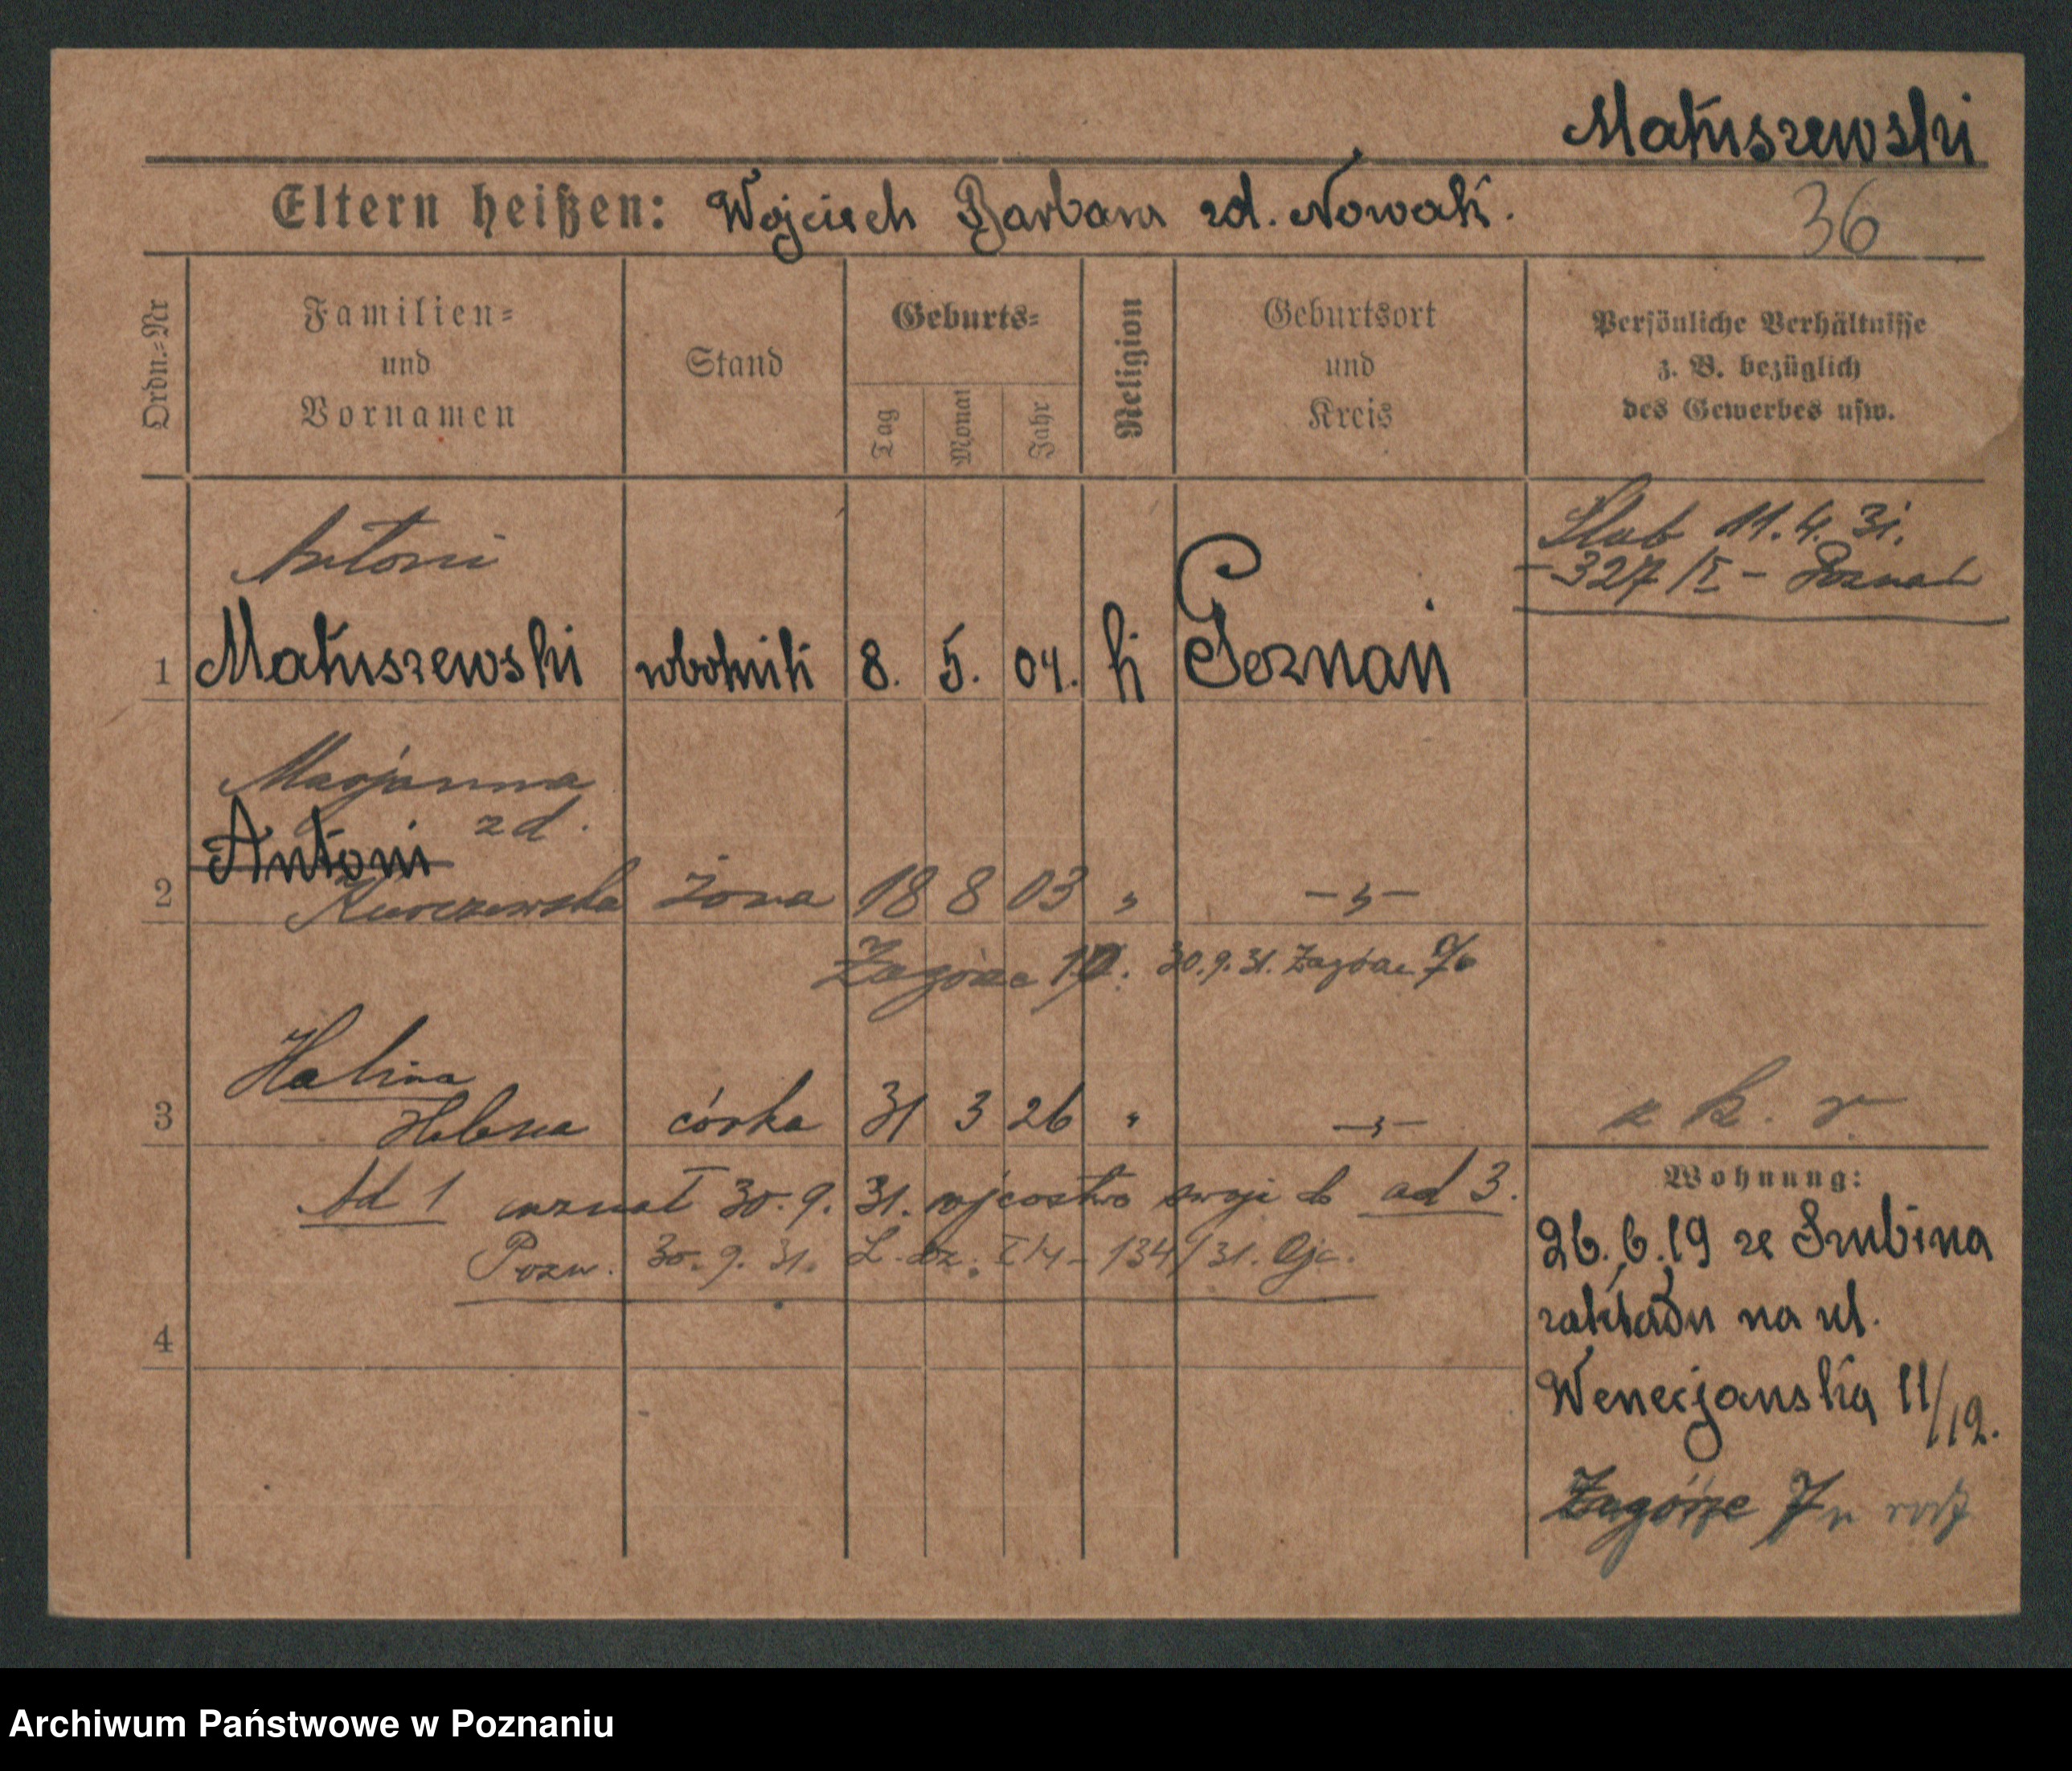 Matuszewski
Eltern heißen: Wojciech Barbara zd. Nowak.
36
Ordn.=Nr
Familien=
und
Vornamen
Stand
Geburts=
Tag
Monat
Jahr
Religion
Geburtsort
und
Kreis
Persönliche Verhältnisse
z. B. bezüglich
des Gewerbes usw.
Ślub 11.4.31.
-327/I- Poznań
Antoni
1 Matuszewski robotnik 8. 5. 04. k Poznań
Marjanna
zd.
Antoni
2 Kurczewska żona 18 8 03 " -"-
Zagórze 30.9.31. Zagórze 7
Halina
3 Helena córka 31 3 26 " -"-
k. r.
Ad 1 uznał 30.9.31. ojcostwo swoje do ad 3.
Pozn. 30.9.31. L. dz. I/4-134/31. Ojc.
4
Wohnung:
26.6.19 ze Szubina
zakładu na ul.
Wenecjańską 11/12.
Zagórze 7
Archiwum Państwowe w Poznaniu